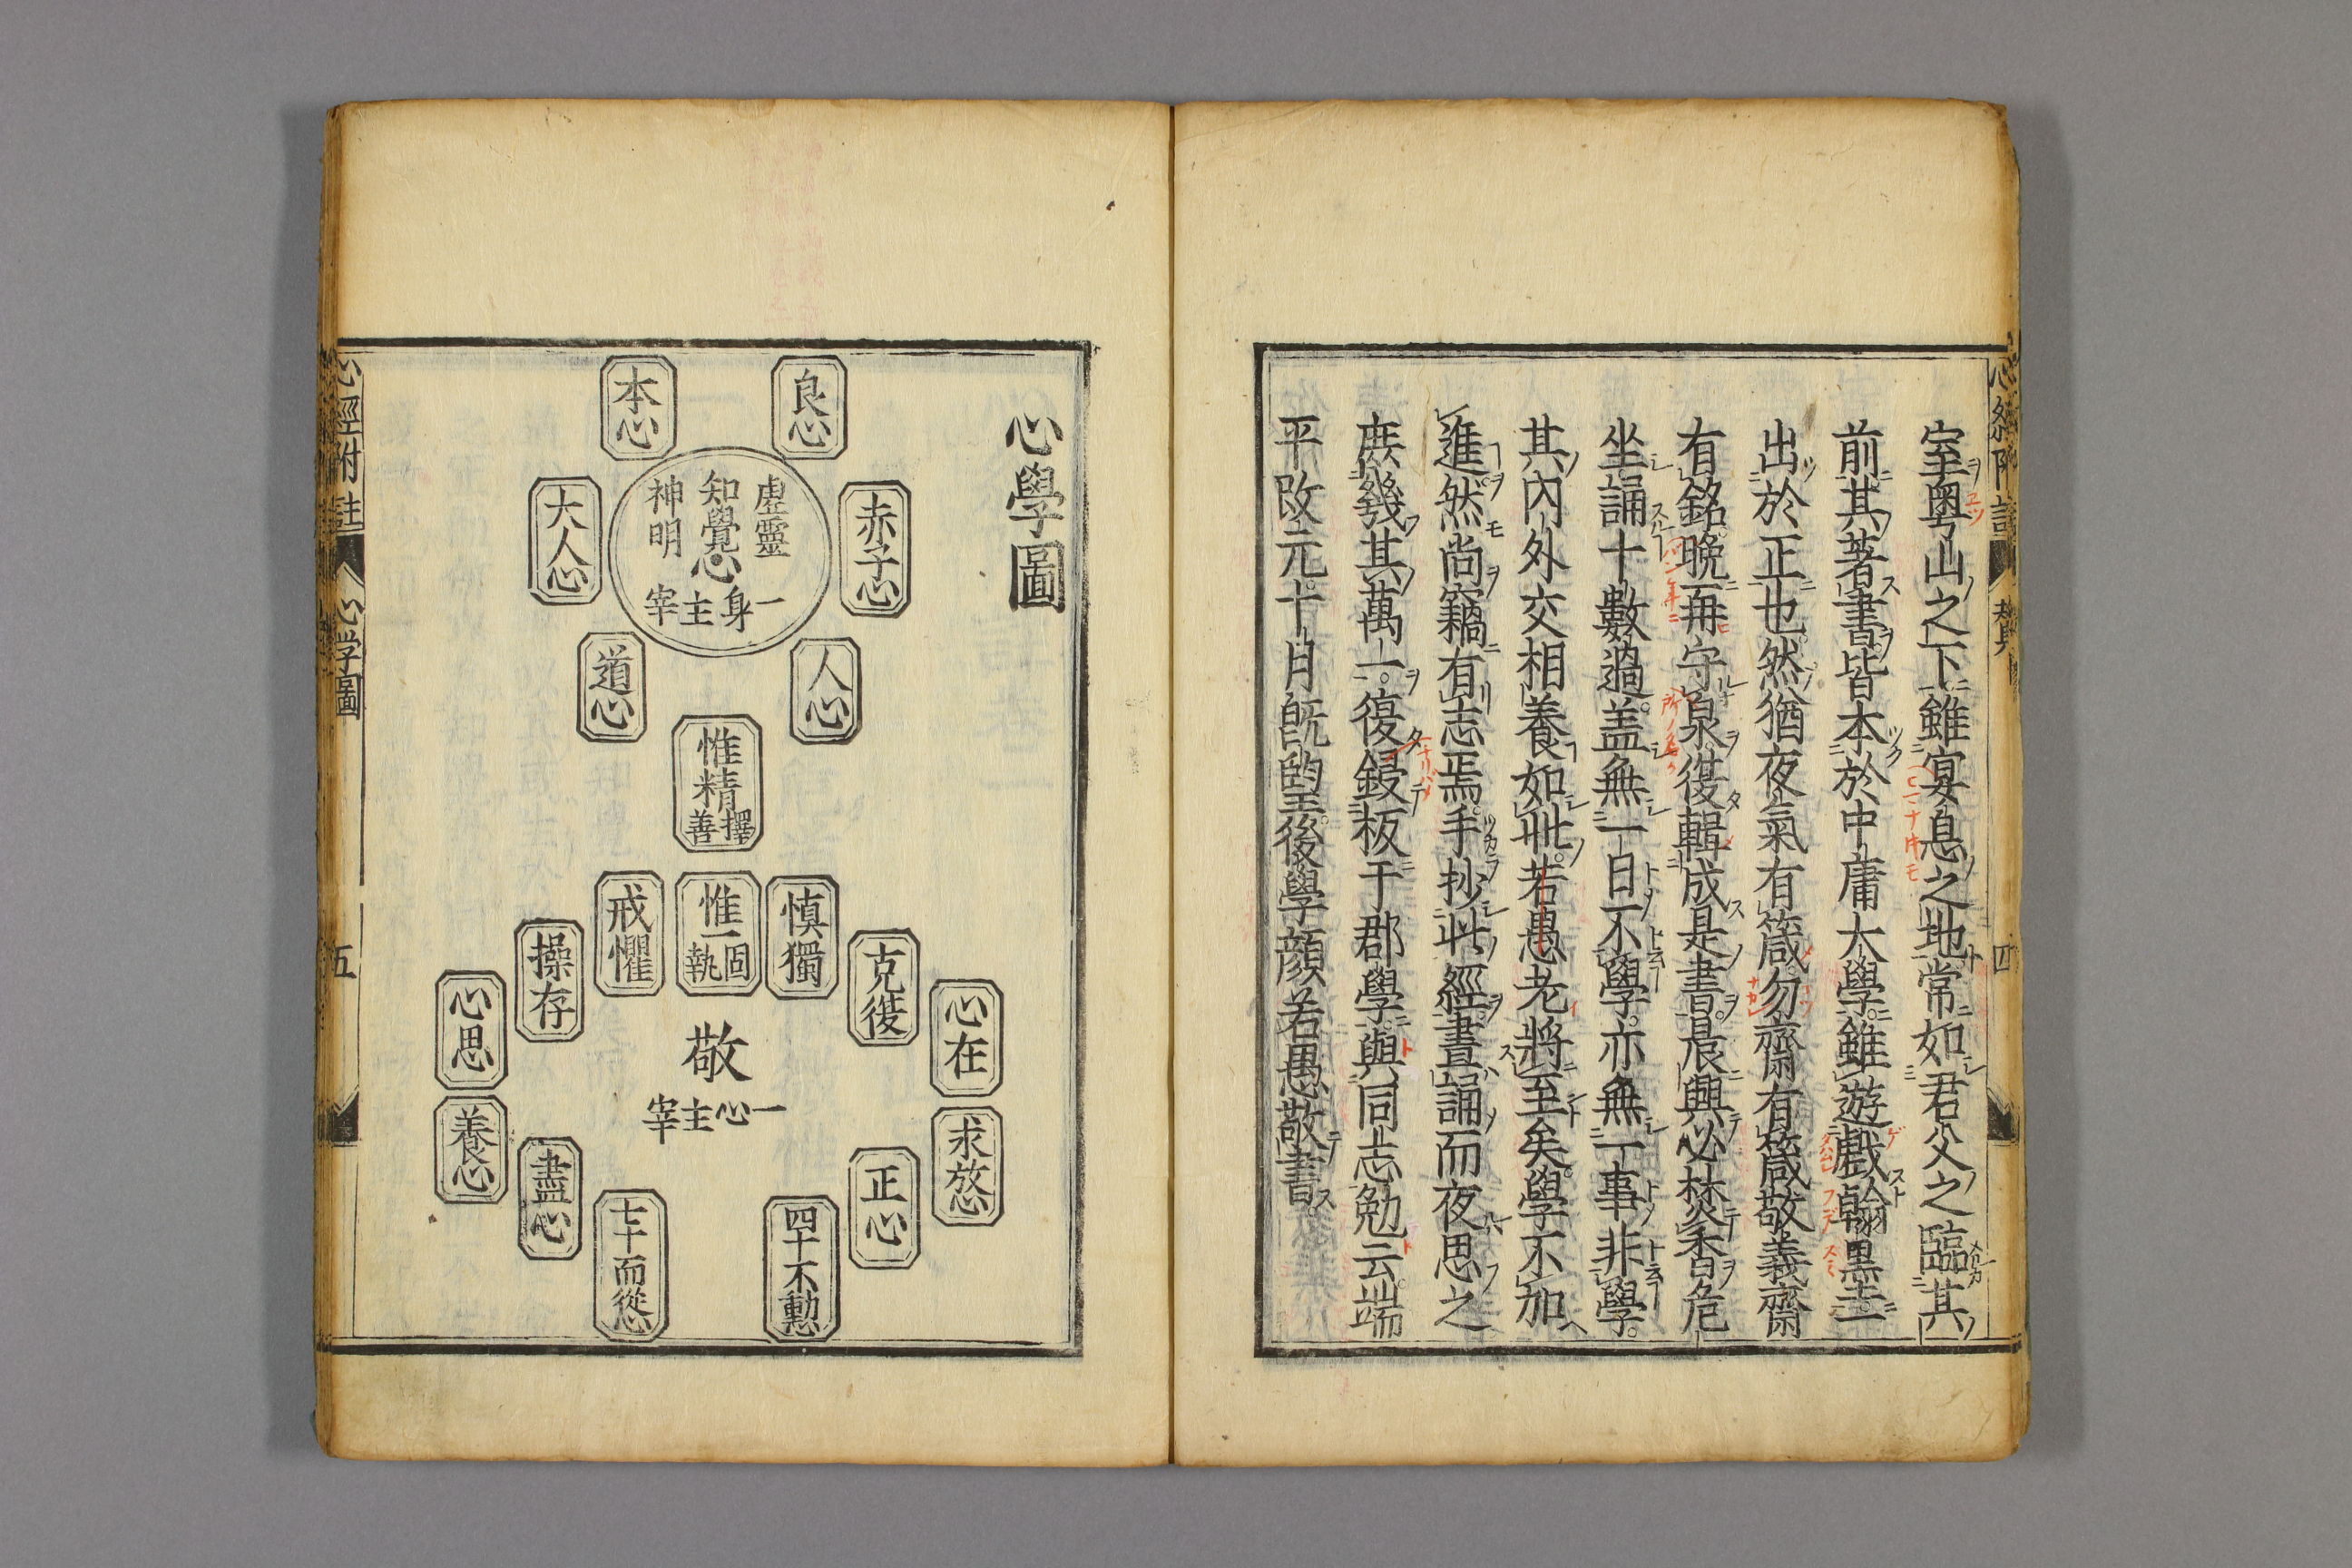 室粤山之下雖寡息之地常如君父之臨其
前其著書皆本於中庸大學雖遊戲翰墨主
出於正也然猶夜氣有箴勿齋有箴敬義齋
有銘晚再守泉復輯成是書晨興必焚香危
坐誦十數過盖無一日不學亦無一事非學
其內外交相養如此若愚老將至矣學不加
進然尚竊有志焉手抄此經晝誦而夜思之
庶幾其萬一復鋟板于郡學與同志勉云端
平改元十月既朢後學顏若愚敬書
四
心學圖
良心
本心
虛靈
知覺
神明
心
一身主宰
赤子心
大人心
人心
道心
惟精
擇善
慎獨
惟一
固執
戒懼
克復
操存
心在
心思
敬
一心主宰
求放心
養心
正心
盡心
四十不動心
七十而從心
心經附註
心学圖
五